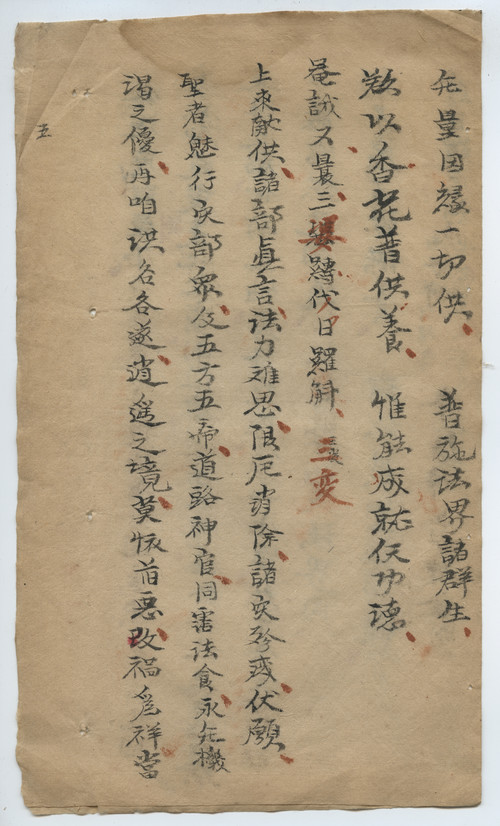 无量因縁一切供、 普施法界諸群生、
歎以香花普供養、 惟能成就仸功德、
菴誐曩三、婆韈伐日羅斛、三变
上來献供、諸部真言、法力难思、限厄消除、諸灾殄灭、伏願、
聖者魅行灾部眾、及五方五帝、道路神官、同霑法食、永无機
渴之優、再咱洪名、各遂逍遥之境、莫怀旨恶、改祸為祥、當
五